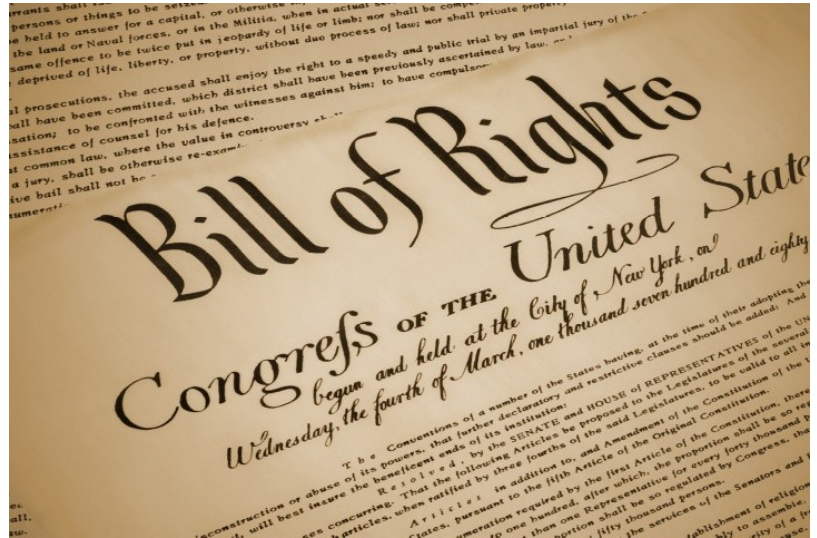 rrants shall
persons or things to be seized
be held to answer for a capital, or otherwise
the land or Naval forces, or in the Militia, when in actual
same offence to be twice put in jeopardy of life or limb; nor shall be
deprived of life, liberty, or property, without due process of law; nor shall private property
l prosecutions, the accused shall enjoy the right to a speedy and public trial by an impartial jury of the
all have been committed, which district shall have been previously ascertained by law,
sation; to be confronted with the witnesses against him; to have compulsory
ssistance of counsel for his defence.
t common law, where the value in controversy
a jury, shall be otherwise
ive bail shall not
numerati
Bill of Rights
Congreſs OF THE United State
begun and held at the City of New York, on
Wednesday, the fourth of March, one thousand seven hundred and eighty
The Conventions of a number of the States having, at the time of their adopting the
nconstruction or abuse of its powers, that further declaratory and restrictive clauses should be added: And
will best insure the beneficent ends of its institution:
Resolved, by the SENATE and HOUSE of REPRESENTATIVES of the UN
ses concurring. That the following Articles be proposed to the Legislatures of the several
articles, when ratified by three fourths of the said Legislatures, to be valid to all in
Articles in addition to, and Amendment of the Constitution of the U
States, pursuant to the fifth Article of the Original Constitution.
numeration required by the first Article of the Constitution, there
to one hundred, after which, the proportion shall be so reg
than one Representative for every forty thousand p
shall be so regulated by Congress, tha
fifty thousand persons.
the services of the Senators and
ablishment of religion
bly to assemble,
rity of a fr